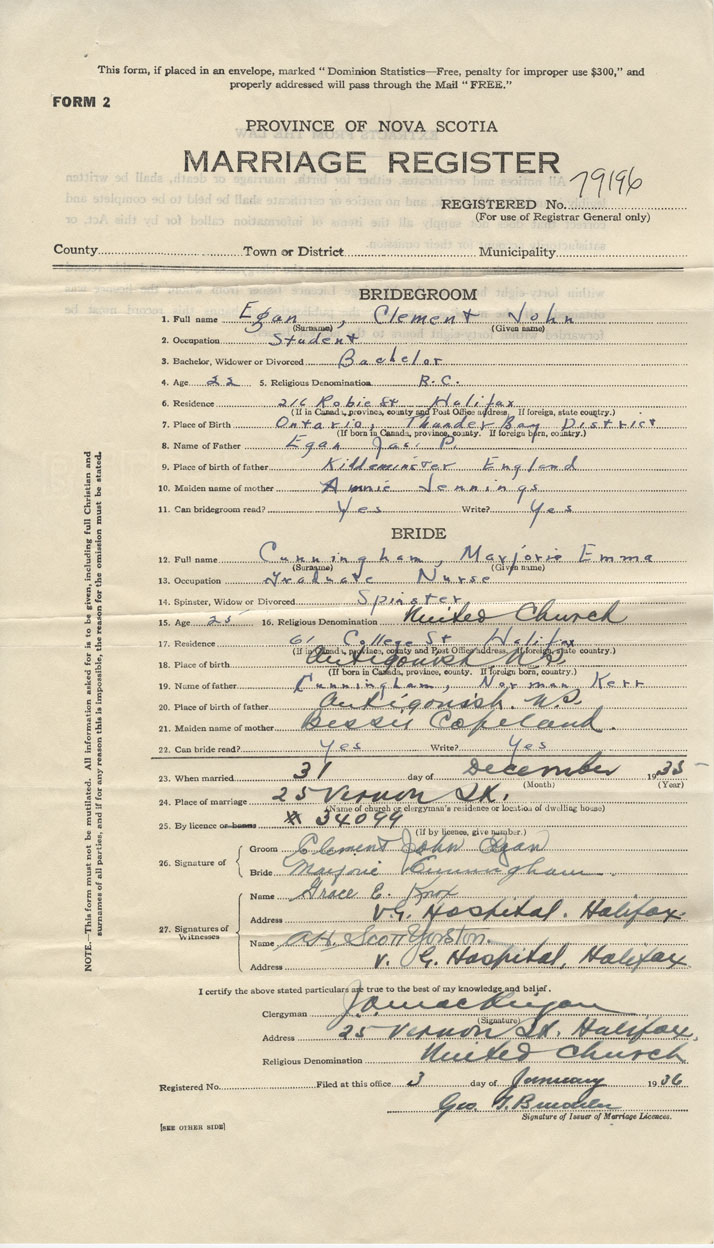 This form, if placed in an envelope, marked "Dominion Statistics—Free, penalty for improper use $300," and
properly addressed will pass through the Mail "FREE."
FORM 2
PROVINCE OF NOVA SCOTIA
MARRIAGE REGISTER
REGISTERED No. 79196
(For use of Registrar General only)
County Town or District Municipality
BRIDEGROOM
1. Full name Egan, Clement John
(Surname) (Given name)
2. Occupation Student
3. Bachelor, Widower or Divorced Bachelor
4. Age 22 5. Religious Denomination R.C.
6. Residence 216 Robie St Halifax
(If in Canada, province, county and Post Office address. If foreign, state country.)
7. Place of Birth Ontario, Thunder Bay District
(If born in Canada, province, county. If foreign born, country.)
8. Name of Father Egan Jas. P.
9. Place of birth of father Kidderminster England
10. Maiden name of mother Annie Jennings
11. Can bridegroom read? Yes Write? Yes
BRIDE
12. Full name Cunningham, Marjorie Emma
(Surname) (Given name)
13. Occupation Graduate Nurse
14. Spinster, Widow or Divorced Spinster
15. Age 25 16. Religious Denomination United Church
17. Residence 61 College St Halifax
(If in Canada, province, county and Post Office address. If foreign, state country.)
18. Place of birth Antigonish, N.S.
(If born in Canada, province, county. If foreign born, country.)
19. Name of father Cunningham, Norman Kerr
20. Place of birth of father Antigonish. N.S.
21. Maiden name of mother Bessie Copeland.
22. Can bride read? Yes Write? Yes
23. When married 31 day of December 1935
(Month) (Year)
24. Place of marriage 25 Vernon St.
(Name of church or clergyman's residence or location of dwelling house)
25. By licence or banns # 34099
(If by licence, give number.)
26. Signature of
Groom Clement John Egan
Bride Marjorie Cunningham
27. Signatures of Witnesses
Name Grace E. Knox
Address V.G. Hospital. Halifax
Name A.H. Scott Yorston.
Address V. G. Hospital, Halifax
I certify the above stated particulars are true to the best of my knowledge and belief.
Clergyman
(Signature)
Address 25 Vernon St. Halifax,
Religious Denomination United Church
Registered No. Filed at this office 3 day of January 1936
Geo.
Signature of Issuer of Marriage Licences.
[SEE OTHER SIDE]
NOTE.—This form must not be mutilated. All information asked for is to be given, including full Christian and
surnames of all parties, and if for any reason this is impossible, the reason for the omission must be stated.